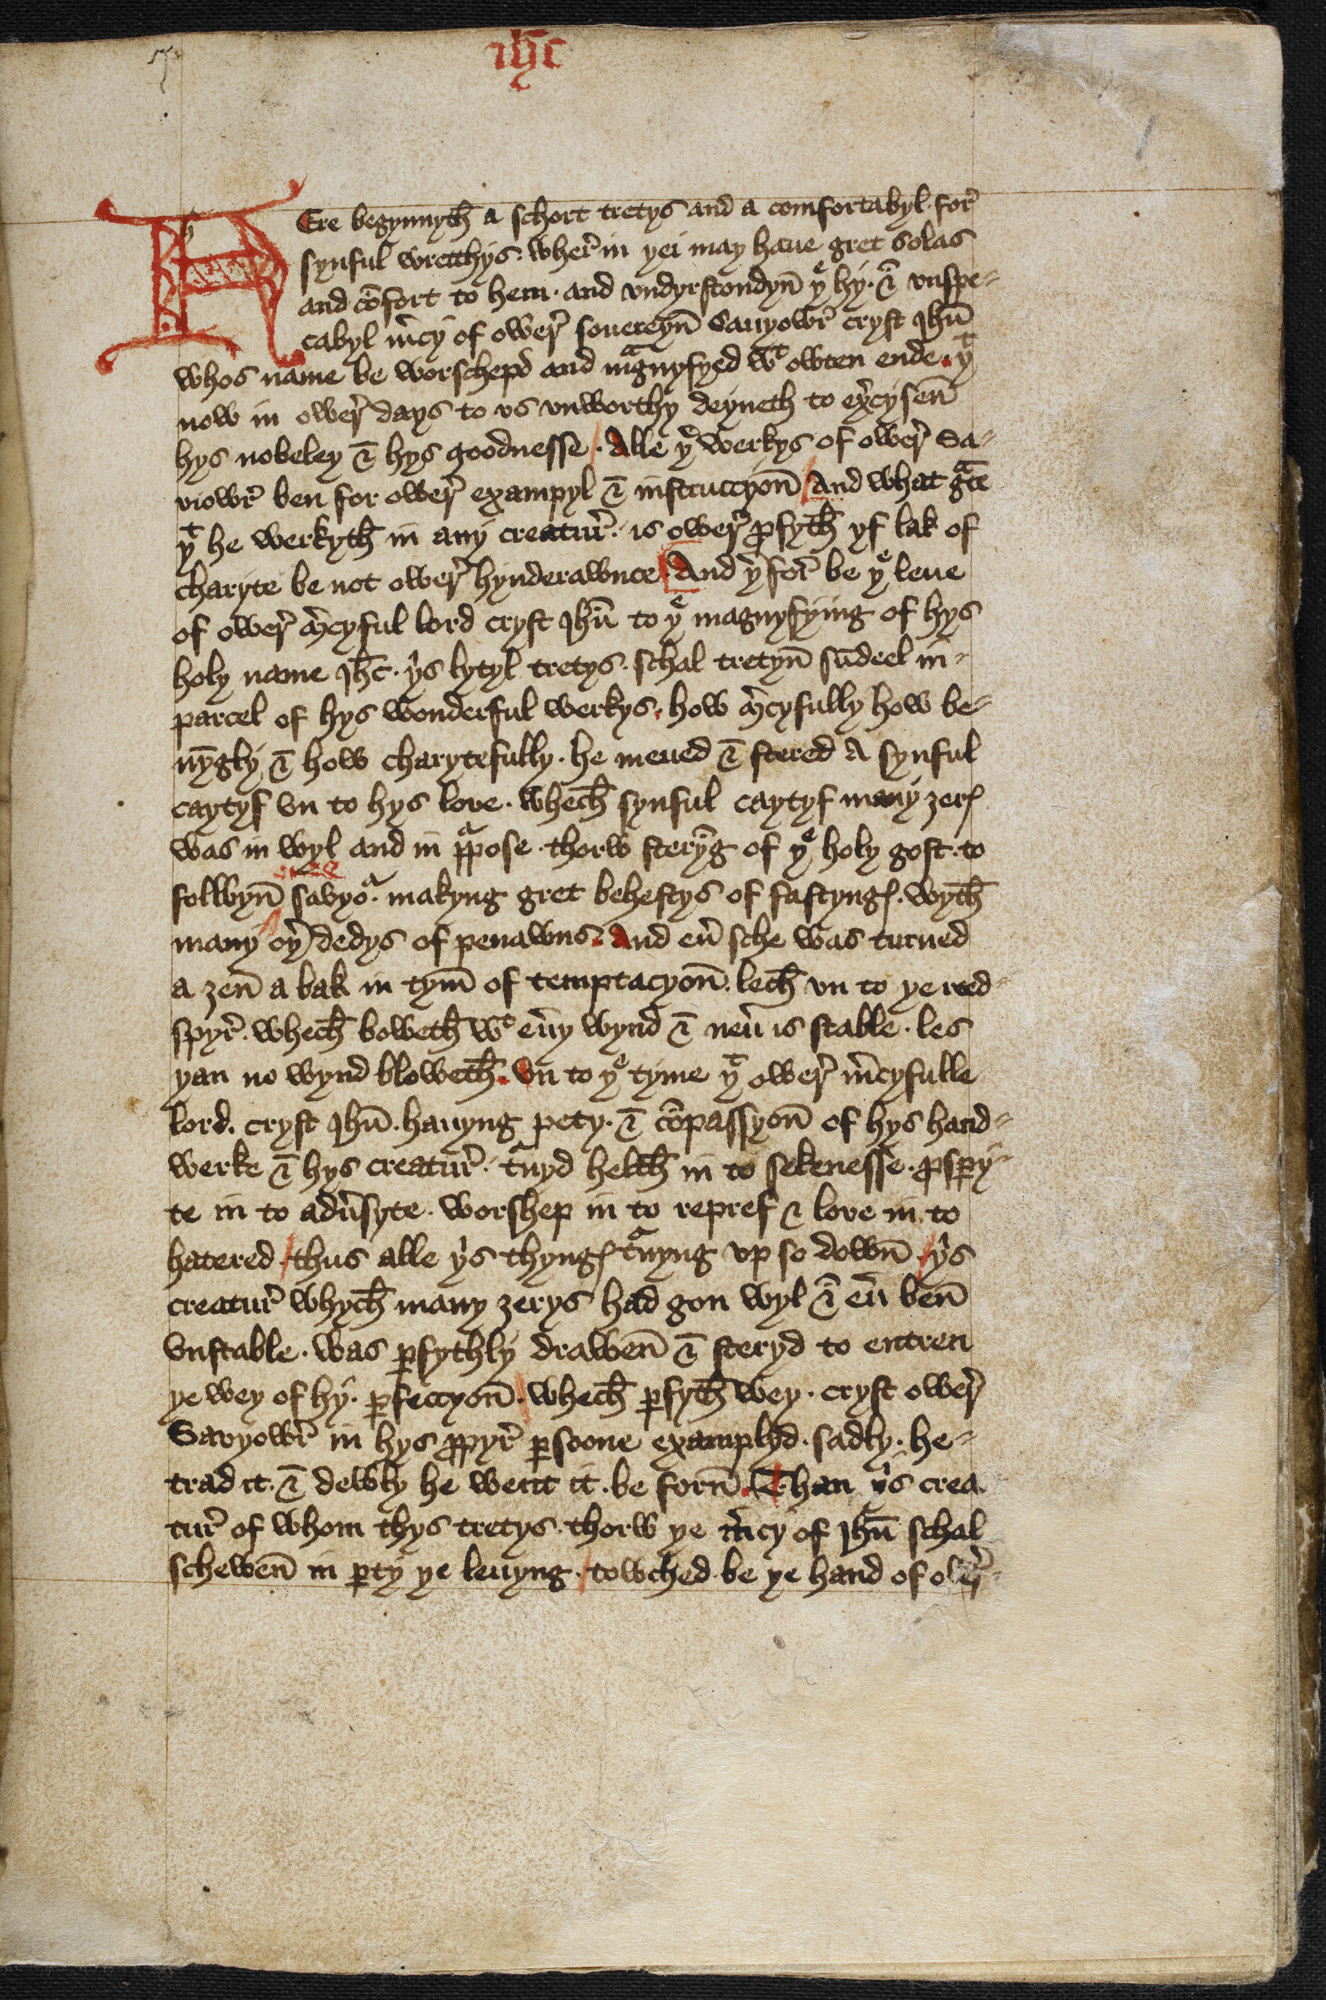 ihc
1
HEre begynnyth̄ a schort tretys and a comfortabyl for̉
synful wrecchys. wher̉ in yei may haue gret solas
and cōfort to hem. and vndyrstondyn̄ yͤ hy. & vnspe-
cabyl m̉cy of ower̉ souereyn̄ Sauyowr̉ cryst Ihū
whos name be worschepd and mᵃgnyfyed wᵗ owten ende. yᵗ
now in ower̉ days to vs vnworthy deyneth to ex̉cysen̄
hys nobeley & hys goodnesse / Alle yͤ werkys of ower̉ Sa-
viowr̉ ben for ower̉ exampyl & instruccyon̄ / And what gᵃce
yᵗ he werkyth̄ in any creatur̉. is ower̉ ꝓfyth̄ yf lak of
charyte be not ower̉ hynderawnce / And ỷ for̉ be yͤ leue
of ower̉ m̉cyful lord cryst Ihū to yͤ magnyfying of hys
holy name Ihc̄. ỷs lytyl tretys. schal tretyn̄ sūdeel in-
parcel of hys wonderful werkys. how m̉cyfully how be-
nȳgly & how charytefully. he meued & stered A synful
caytyf vn to hys love. whech̄ synful caytyf many zerꝭ
was in wyl and in pᵘpose. thorw sterȳg of yͤ holy gost. to
folwyn̄ oure savyoᵘ. makyng gret behestys of fastyngꝭ. wyth̄
many oỷ dedys of penawns. And eủ sche was turned
a zen̄ a bak in tym̄ of temptacyon̄. lech̄ vn to ye reed-
spyr̉. whech̄ boweth̄ wᵗ eủy wynd & neủ is stable. les
yan no wynd bloweth̄. Vn to yͤ tyme yᵗ ower̉ m̉cyfulle
lord. cryst Ihū. hauyng pety. & cōpassyon̄ of hys hand-
werke & hys creatur̉. tᵘnyd helth̄ in to sekenesse. ꝓsꝑy-
te in to adủsyte. worshep in to repref & love in to
hatered / thus alle ỷs thyngꝭ tᵘnyng vp so down̄ / ỷs
creatur̉ whych̄ many zerys had gon wyl & eủ ben̄
vnstable. was ꝑfythly drawen̄ & steryd to entren
ye wey of hy. ꝑfeccyon̄. / whech̄ ꝑfyth̄ wey. cryst ower̉
Savyowr̉ in hys ꝓpyr̉ ꝑsoone examplyd. sadly. he-
trad it. & dewly he went it. be forn̄. Than ỷs crea
tur̉ of whom thys tretys. thorw ye m̉cy of Ihū schal
schewen̄ in ꝑty ye leuyng. / towched be ye hand of ower̉